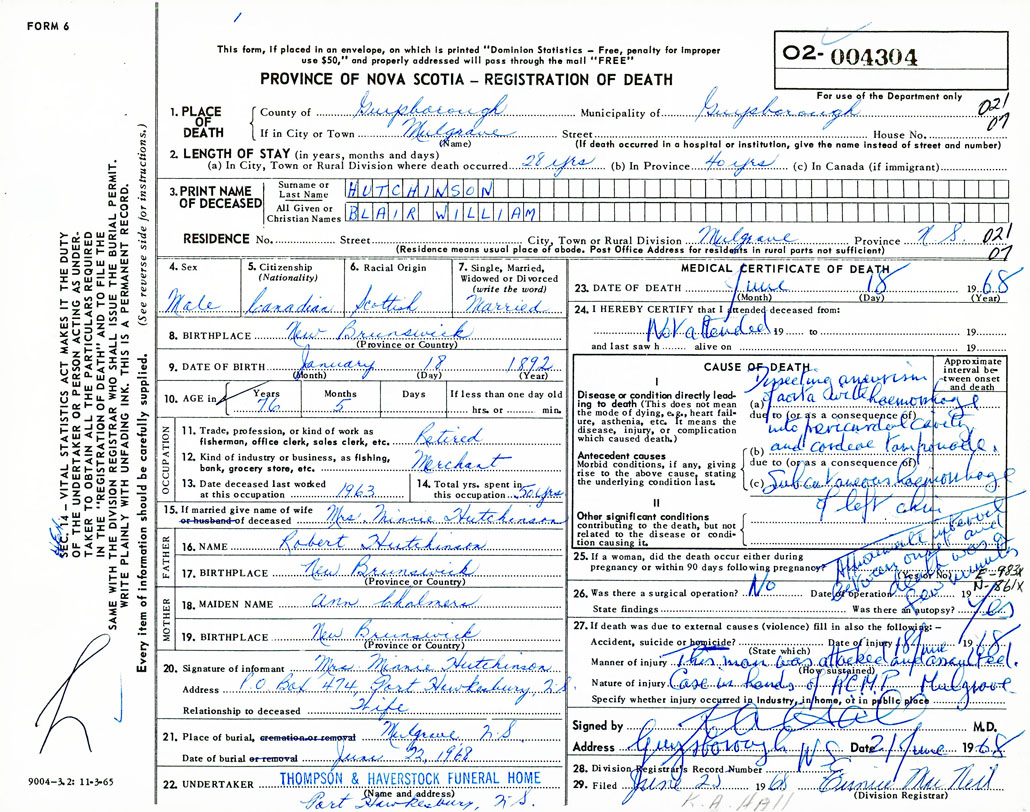 FORM 6
1
This form, if placed in an envelope, on which is printed "Dominion Statistics – Free, penalty for improper
use $50," and properly addressed will pass through the mail "FREE"
PROVINCE OF NOVA SCOTIA – REGISTRATION OF DEATH
02- 004304
For use of the Department only
1. PLACE OF DEATH
County of Guysborough Municipality of Guysborough 021
If in City or Town Mulgrave Street House No. 07
(Name) (If death occurred in a hospital or institution, give the name instead of street and number)
2. LENGTH OF STAY (in years, months and days)
(a) In City, Town or Rural Division where death occurred 28 yrs (b) In Province 40 yrs (c) In Canada (if immigrant)
3. PRINT NAME OF DECEASED
Surname or Last Name HUTCHINSON
All Given or Christian Names BLAIR WILLIAM
RESIDENCE No. Street City, Town or Rural Division Mulgrave Province N S 021
(Residence means usual place of abode. Post Office Address for residents in rural parts not sufficient) 07
4. Sex
Male
5. Citizenship
(Nationality)
Canadian
6. Racial Origin
Scottish
7. Single, Married,
Widowed or Divorced
(write the word)
Married
8. BIRTHPLACE New Brunswick
(Province or Country)
9. DATE OF BIRTH January 18 1892
(Month) (Day) (Year)
10. AGE in
Years Months Days If less than one day old
76 5 hrs. or min.
OCCUPATION
11. Trade, profession, or kind of work as
fisherman, office clerk, sales clerk, etc. Retired
12. Kind of industry or business, as fishing,
bank, grocery store, etc. Merchant
13. Date deceased last worked
at this occupation 1963
14. Total yrs. spent in
this occupation 50 yrs
15. If married give name of wife
or husband of deceased Mrs. Minnie Hutchinson
FATHER
16. NAME Robert Hutchinson
17. BIRTHPLACE New Brunswick
(Province or Country)
MOTHER
18. MAIDEN NAME Ann Chalmers
19. BIRTHPLACE New Brunswick
(Province or Country)
20. Signature of informant Mrs Minnie Hutchinson
Address P O Box 474, Port Hawkesbury, N.S.
Relationship to deceased Wife
21. Place of burial, cremation or removal Mulgrave N S
Date of burial or removal June 22, 1968
22. UNDERTAKER THOMPSON & HAVERSTOCK FUNERAL HOME
(Name and address)
Port Hawkesbury, N.S.
MEDICAL CERTIFICATE OF DEATH
23. DATE OF DEATH June 18 1968
(Month) (Day) (Year)
24. I HEREBY CERTIFY that I attended deceased from:
Not attended 19 to 19
and last saw h alive on 19
CAUSE OF DEATH
Approximate interval between onset and death
I
Disease or condition directly leading to death (This does not mean the mode of dying, e.g., heart failure, asthenia, etc. It means the disease, injury, or complication which caused death.)
(a) Dissecting aneurism
of aorta with haemorrhage
due to (or as a consequence of)
into pericardial cavity
(b) and cardiac tamponade.
Antecedent causes
Morbid conditions, if any, giving rise to the above cause, stating the underlying condition last.
due to (or as a consequence of)
(c) Subcutaneous haemorrhage
of left chin
II
Other significant conditions
contributing to the death, but not related to the disease or condition causing it.
Approximate interval
between onset and
death was a
few minutes
25. If a woman, did the death occur either during
pregnancy or within 90 days following pregnancy?
(Yes or No)
E-983X
N-861X
26. Was there a surgical operation? No Date of operation 19
State findings Was there an autopsy? Yes
27. If death was due to external causes (violence) fill in also the following:–
Accident, suicide or homicide? Date of injury 18 June 1968
(State which)
Manner of injury This man was attacked and assaulted.
(How sustained)
Nature of injury Case in hands of RCMP Mulgrave
Specify whether injury occurred in industry, in home, or in public place
Signed by M.D.
Address Guysborough N S Date 21 June 1968
28. Division Registrar's Record Number
29. Filed June 25 1968 Eunice Mac Neil
(Division Registrar)
K. A. HAll
SEC. 14 – VITAL STATISTICS ACT MAKES IT THE DUTY
OF THE UNDERTAKER OR PERSON ACTING AS UNDER-
TAKER TO OBTAIN ALL THE PARTICULARS REQUIRED
IN THE "REGISTRATION OF DEATH" AND TO FILE THE
SAME WITH THE DIVISION REGISTRAR WHO SHALL ISSUE THE BURIAL PERMIT.
WRITE PLAINLY WITH UNFADING INK. THIS IS A PERMANENT RECORD.
Every item of information should be carefully supplied. (See reverse side for instructions.)
9004-3.2: 11-3-65